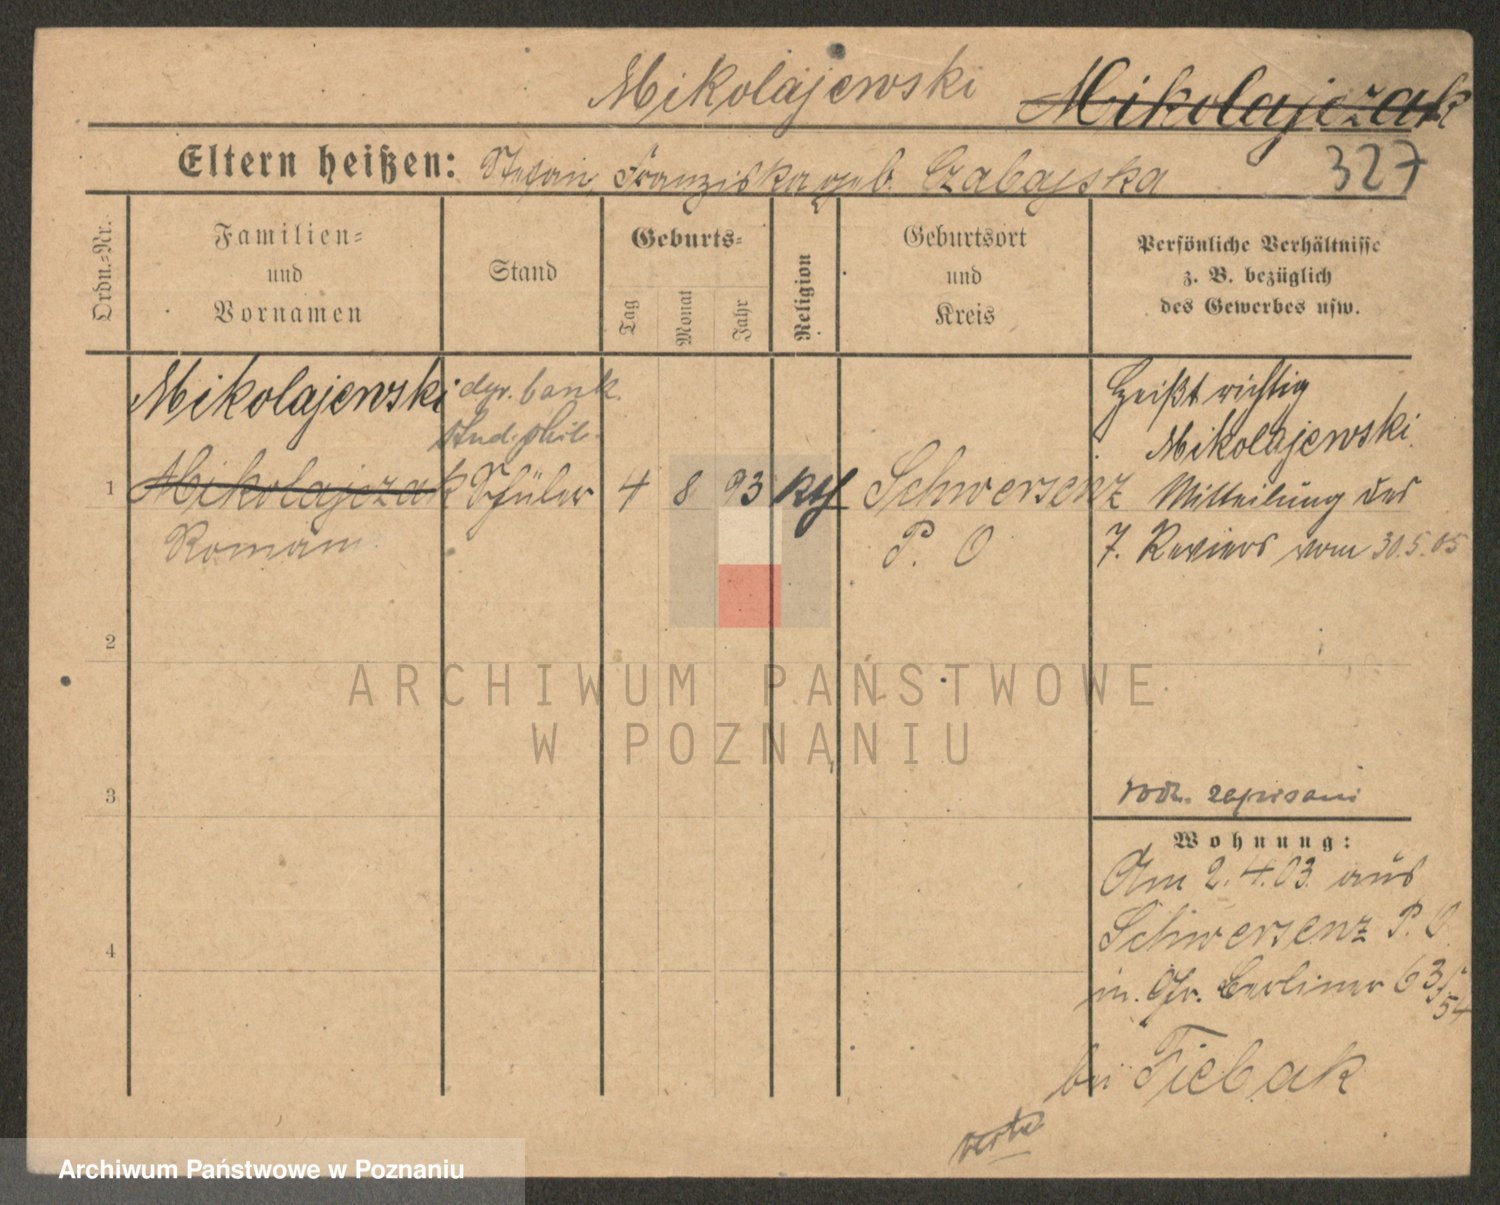 Mikolajewski Mikolajczak
327
Eltern heißen: Stefan, Franziska geb. Czabajska
Ordn.-Nr.
Familien-
und
Vornamen
Stand
Geburts-
Tag
Monat
Jahr
Religion
Geburtsort
und
Kreis
Persönliche Verhältnisse
z. B. bezüglich
des Gewerbes usw.
Mikolajewski dyr. bank.
stud. phil.
1 Mikolajczak Schüler 4 8 93 kth Schwersenz
Roman P. O
Heißt richtig
Mikolajewski.
Mitteilung des
7. Reviers vom 30.5.05
2
3
4
zapisani
Wohnung:
Am 2.4.03. aus
Schwersenz P. O.
in Gr. Berliner 63/54
bei Fiebak
verte
ARCHIWUM PAŃSTWOWE
W POZNANIU
Archiwum Państwowe w Poznaniu